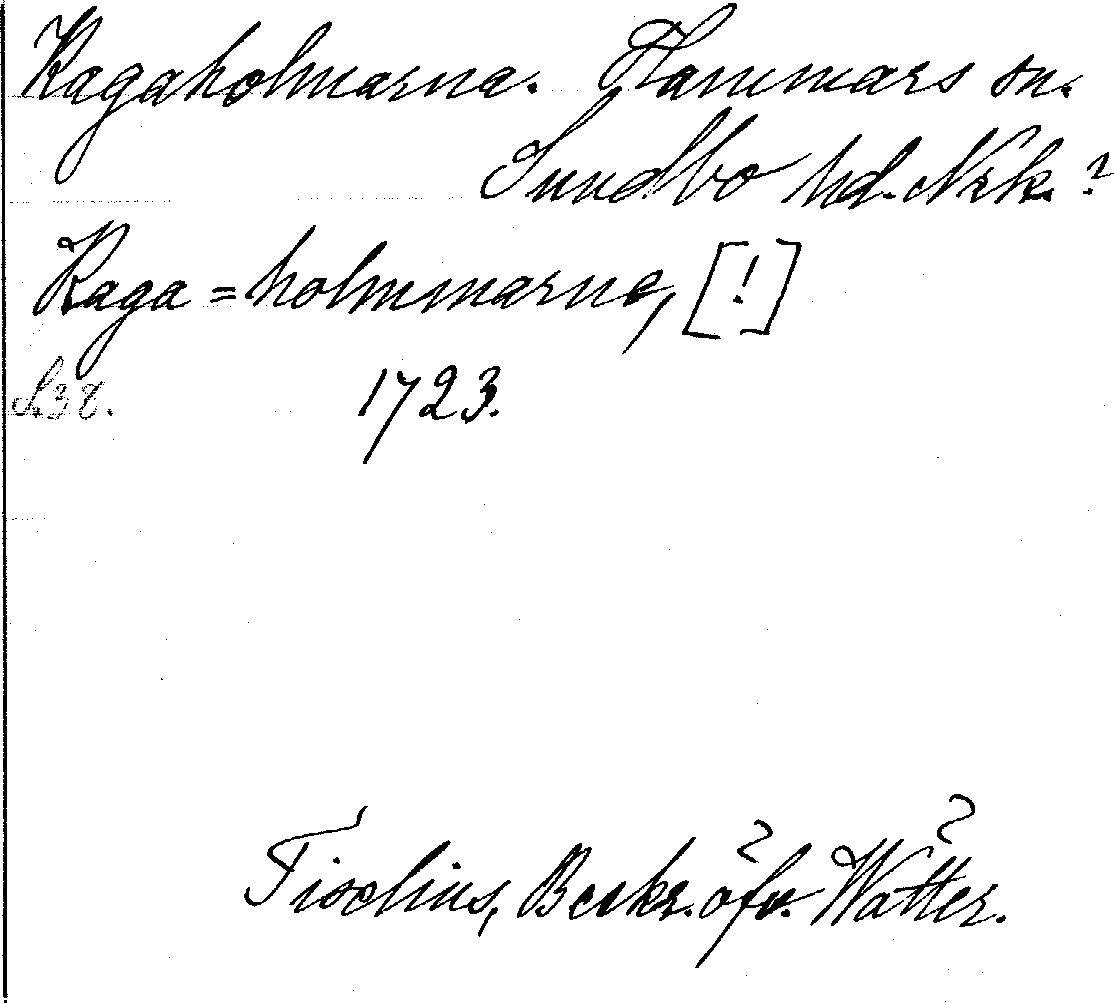 Kagaholmarna. Hammars sn.
Sundbo hd. Nrk. ?
Kaga=holmmarna, [!]
S. 38. 1723.
Tiselius, Beskr. öfv. Wätter.